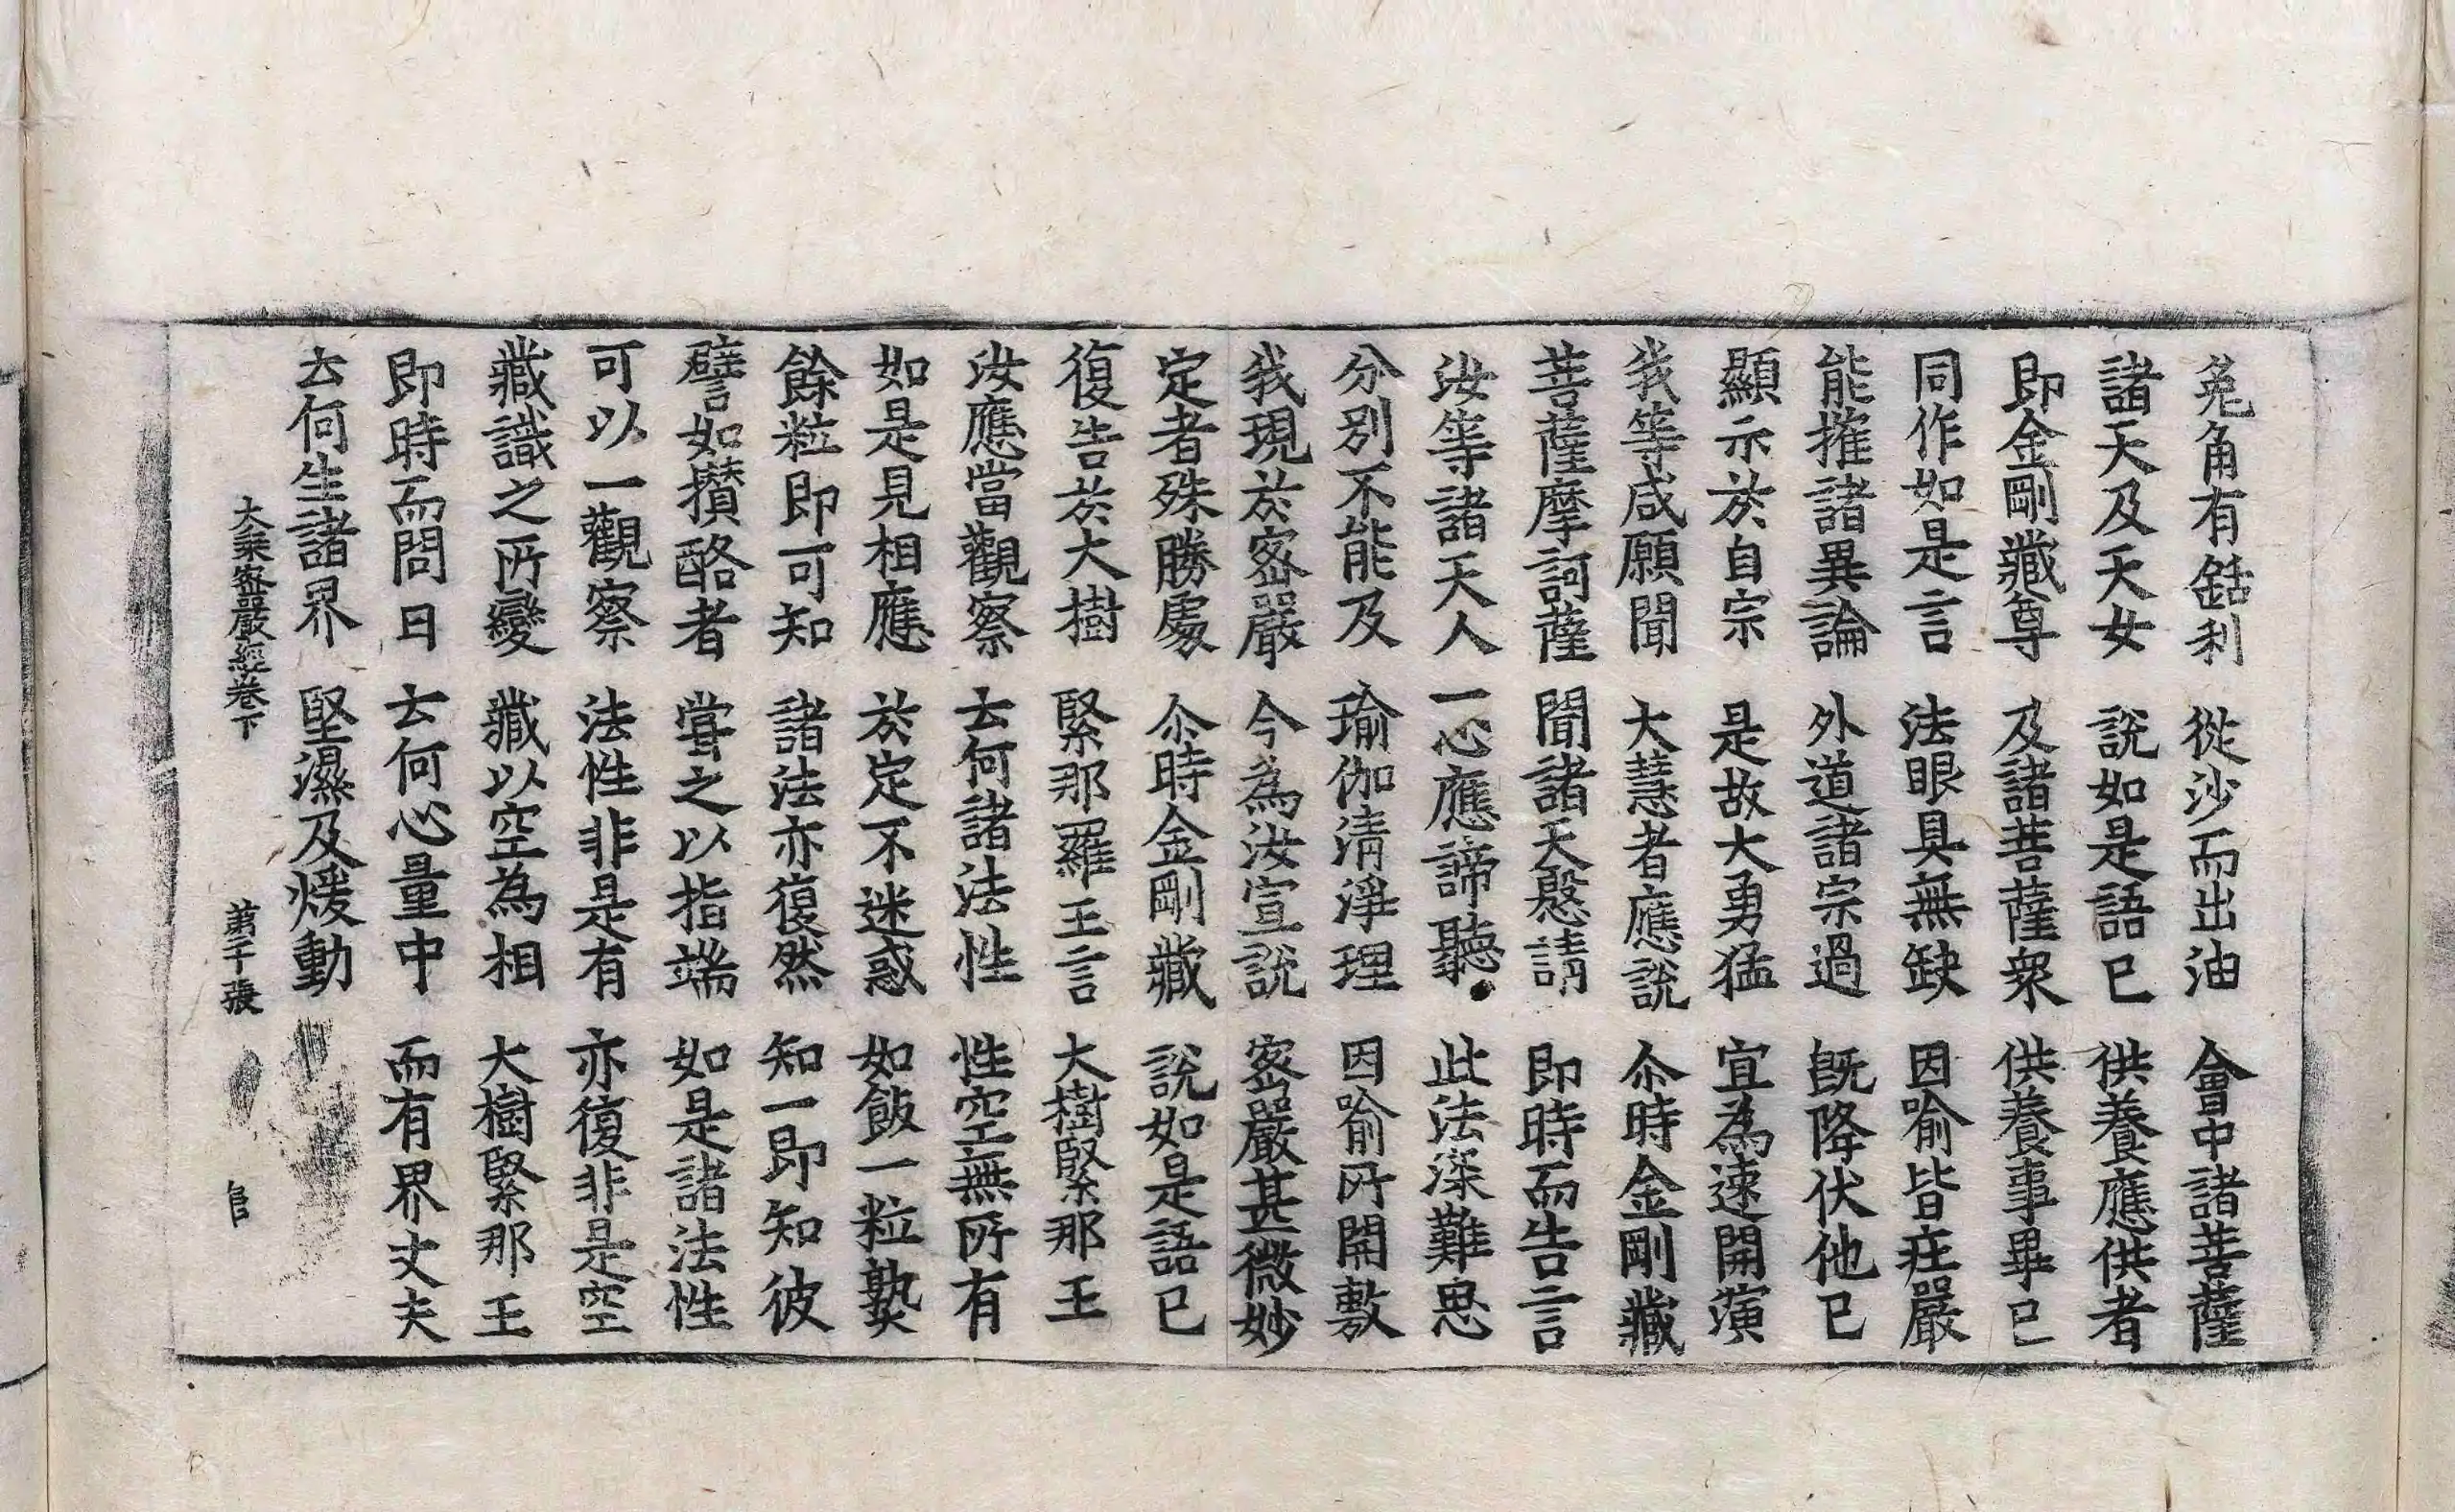 兎角有銛利 從沙而出油 會中諸菩薩
諸天及天女 說如是語已 供養應供者
即金剛藏尊 及諸菩薩衆 供養事畢已
同作如是言 法眼具無缺 因喻皆庄嚴
能摧諸異論 外道諸宗過 旣降伏他已
顯示於自宗 是故大勇猛 宜為速開演
我等咸願聞 大慧者應說 尒時金剛藏
菩薩摩訶薩 聞諸天慇請 即時而告言
汝等諸天人 一心應諦聽 此法深難思
分別不能及 瑜伽淸淨理 因喻所開敷
我現於密嚴 今為汝宣說 密嚴甚微妙
定者殊勝處 尒時金剛藏 說如是語已
復告於大樹 緊那羅王言 大樹緊那王
汝應當觀察 云何諸法性 性空無所有
如是見相應 於定不迷惑 如飯一粒熟
餘粒即可知 諸法亦復然 知一即知彼
譬如攢酪者 嘗之以指端 如是諸法性
可以一觀察 法性非是有 亦復非是空
藏識之所變 藏以空為相 大樹緊那王
即時而問曰 云何心量中 而有界丈夫
云何生諸界 堅濕及煖動
大乘密嚴經卷下 苐千張